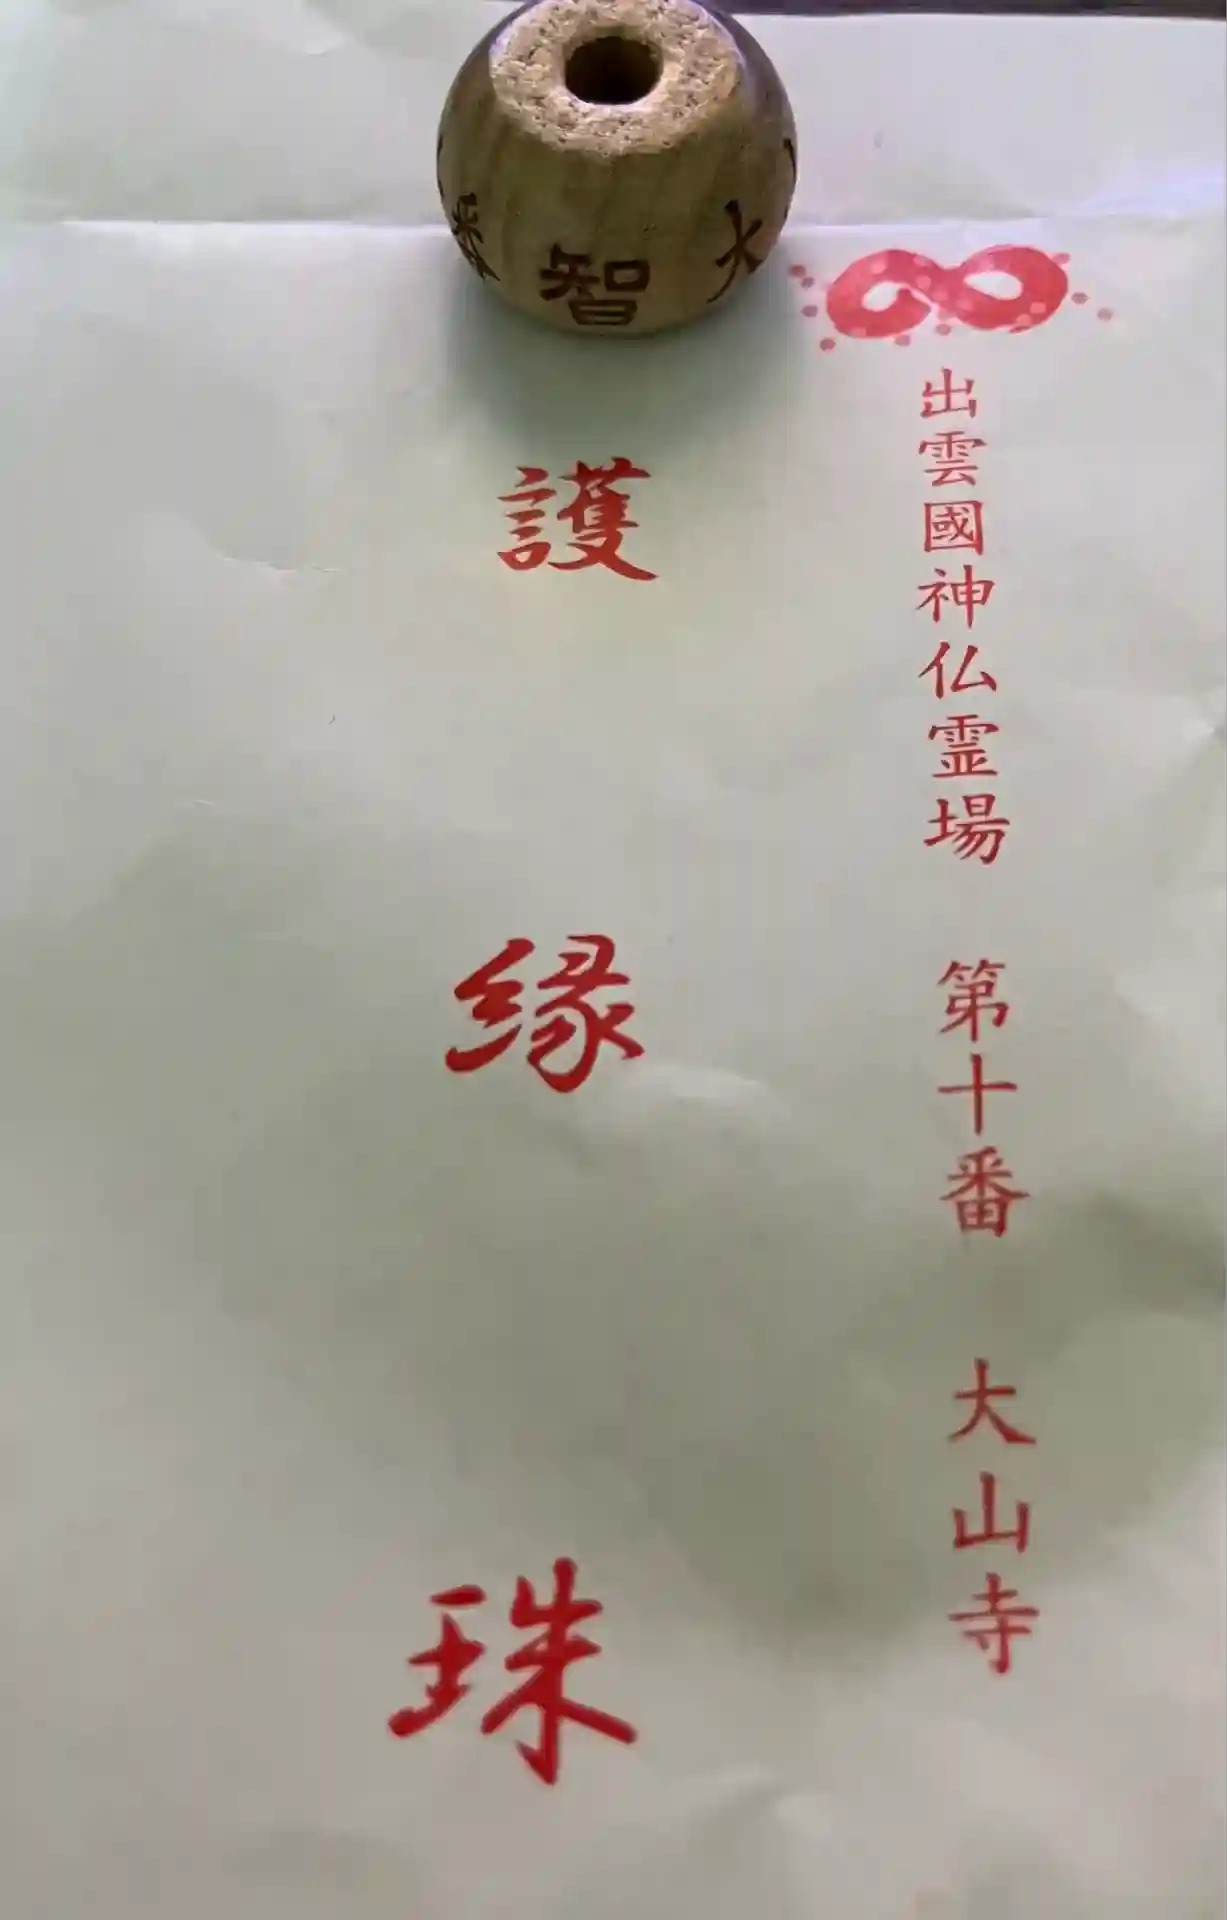 出雲國神仏霊場 第十番 大山寺
護縁珠
智
大